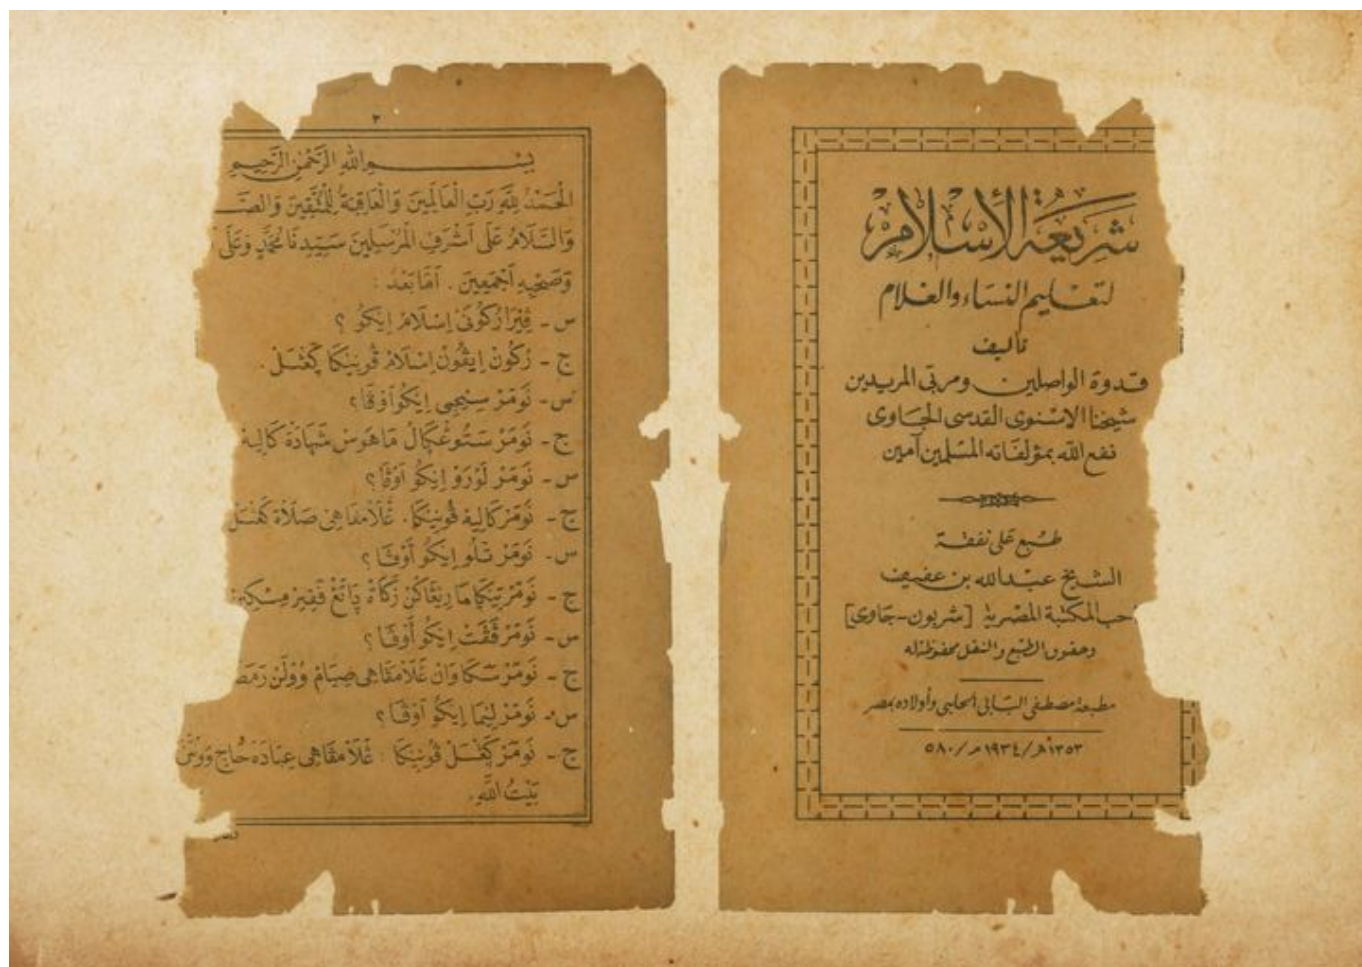 شَرِيعَةُ الْأِسْلَامِ
لتعليم النساء والغلام
تأليف
قدوة الواصلين ومربى المريدين
شيخنا الاسنوى القدسى الجاوى
نفع الله بمؤلفاته المسلمين آمين
طبع على نفقة
الشيخ عبد الله بن عفيف
حب المكتبة المصرية [شربون-جاوى]
وحقوق الطبع والنقل محفوظة له
مطبعة مصطفى البابى الحلبى وأولاده بمصر
١٣٥٣هـ/١٩٣٤م/٥٨٠
٢
بِسْمِ اللهِ الرَّحْمٰنِ الرَّحِيمِ
الْحَمْدُ لِلَّهِ رَبِّ الْعَالَمِينَ وَالْعَاقِبَةُ لِلْمُتَّقِينَ وَالصَّـ
وَالسَّلَامُ عَلَى اَشْرَفِ الْمُرْسَلِينَ سَيِّدِنَا مُحَمَّدٍ وَعَلَى
وَصَحْبِهِ اَجْمَعِينَ . اَمَّا بَعْدُ :
س - ڤِيْرَا رُكُونَىْ اِسْلَامْ اِيْكُو ؟
ج - رُكُونْ اِيْڤُونْ اِسْلَامْ ڤُونِيْكَا ݢَڠْسَلْ .
س - نَومَرْ سِيْجِى اِيْكُو اَوْڤَا ؟
ج - نَومَرْ سَتُوڠْݢَالْ مَاهَوسْ شَهَادَةْ كَالِيهْ
س - نَومَرْ لَوْرَوْ اِيْكُو اَوْڤَا ؟
ج - نَومَرْ كَالِيهْ ڤُونِيْكَا . ڠْلَامْڤَاهِىْ صَلَاةْ ݢَڠْسَلْ
س - نَومَرْ تَلُو اِيْكُو أَوْڤَا ؟
ج - نَومَرْ تِيْݢَا مَارِيڠَاكَنْ زَكَاةْ دَاتَڠْ فَقِيرْ مِسْكِينْ
س - نَومَرْ ڤَڤَتْ اِيْكُو أَوْڤَا ؟
ج - نَومَرْ سَكَاوَانْ ڠَلَامْڤَاهِى صِيَامْ وُوْلَنْ رَمَضَـ
س - نَومَرْ لِيْمَا اِيْكُو اَوْڤَا ؟
ج - نَومَرْ ݢَڠْسَلْ ڤُونِيْكَا : ڠْلَامْڤَاهِى عِبَادَهْ حَاجْ وَونْتَنْ
بَيْتُ اللَّهِ .